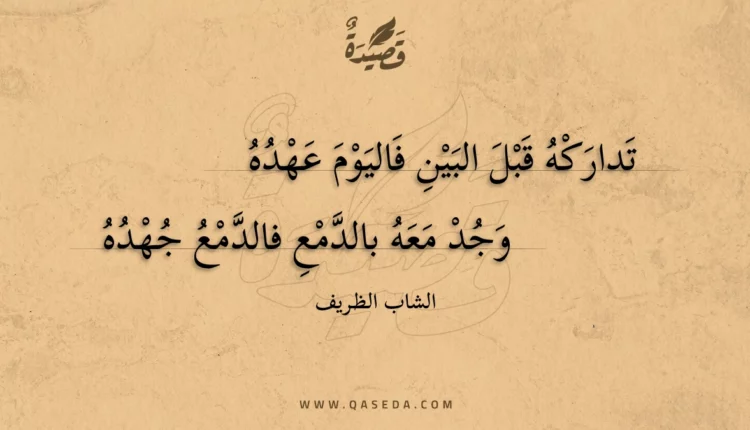 قَصِيدَةٌ
تَدارَكْهُ قَبْلَ البَيْنِ فَاليَوْمَ عَهْدُهُ
وَجُدْ مَعَهُ بالدَّمْعِ فالدَّمْعُ جُهْدُهُ
الشاب الظريف
WWW.QASEDA.COM